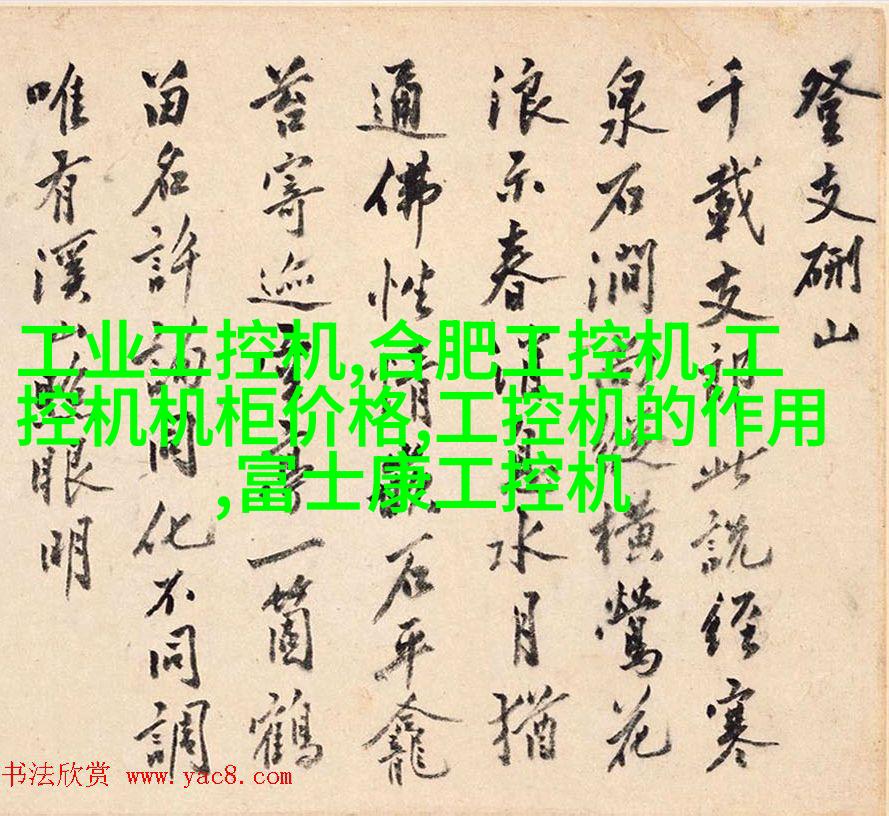 登支硎山
千載支郎此說經寒
泉石澗尚縱橫鶯花
浪示春消息水月猶
通佛性情石平龕
苔寄迹亭一箇鶴
畄名許詢同化不同調
唯有溪山照眼明
工业工控机,合肥工控机,工
控机机柜价格,工控机的作用
,富士康工控机
书法欣赏 www.yac8.com